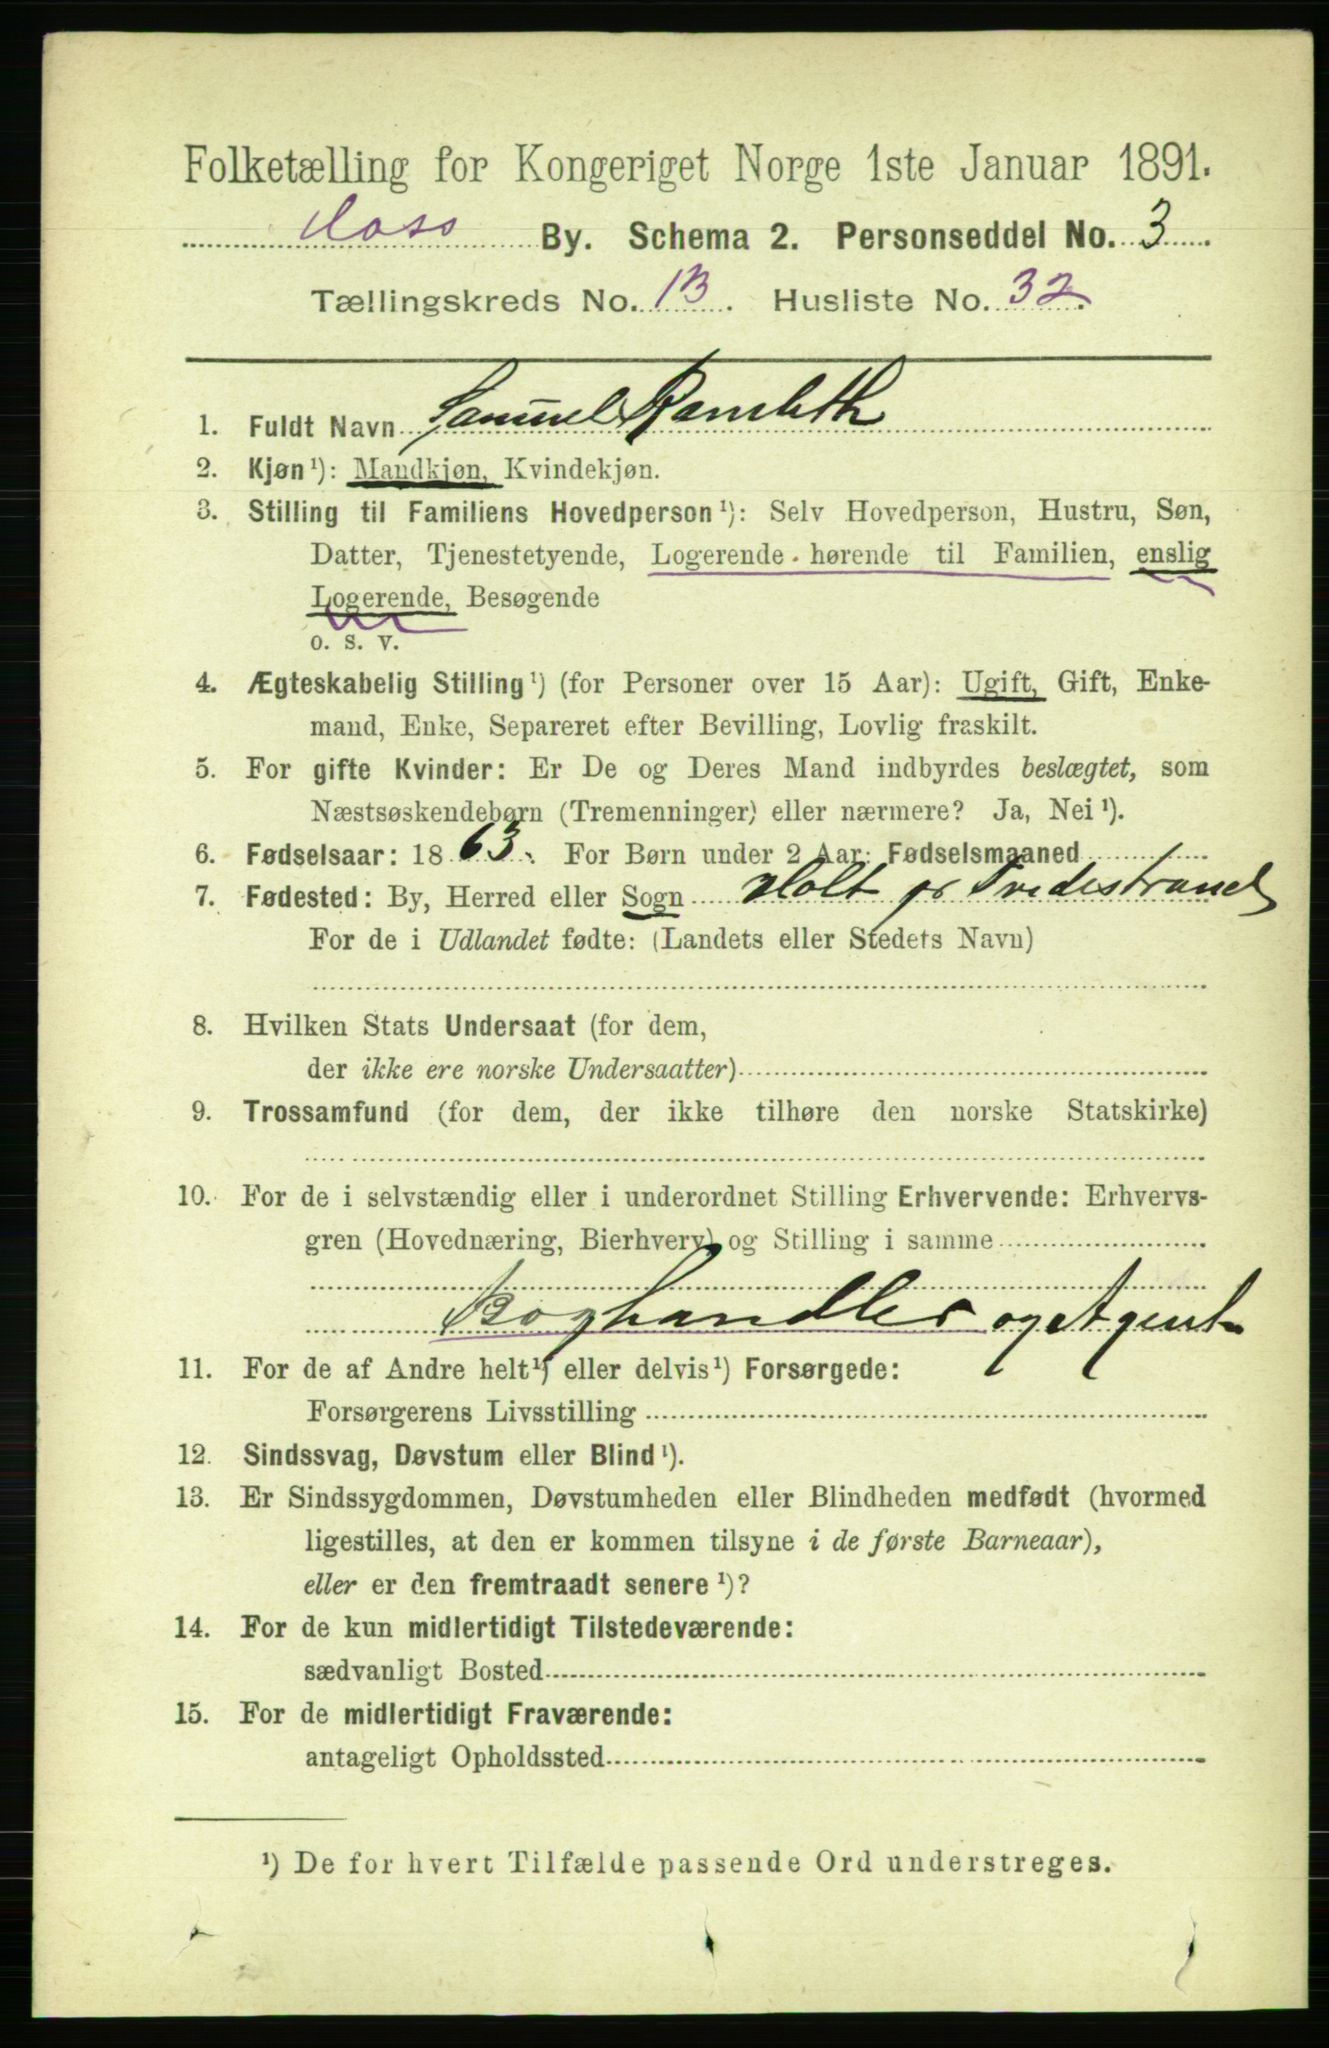 Folketælling for Kongeriget Norge 1ste Januar 1891.
Moss By. Schema 2. Personseddel No. 3
Tællingskreds No. 13. Husliste No. 32.
1. Fuldt Navn Samuel Ramleth
2. Kjøn¹): Mandkjøn, Kvindekjøn.
3. Stilling til Familiens Hovedperson¹): Selv Hovedperson, Hustru, Søn,
Datter, Tjenestetyende, Logerende hørende til Familien, enslig
Logerende, Besøgende
o. s. v.
4. Ægteskabelig Stilling¹) (for Personer over 15 Aar): Ugift, Gift, Enke-
mand, Enke, Separeret efter Bevilling, Lovlig fraskilt.
5. For gifte Kvinder: Er De og Deres Mand indbyrdes beslægtet, som
Næstsøskendebørn (Tremenninger) eller nærmere? Ja, Nei¹).
6. Fødselsaar: 1863. For Børn under 2 Aar: Fødselsmaaned
7. Fødested: By, Herred eller Sogn Holt pr Tvedestrand
For de i Udlandet fødte: (Landets eller Stedets Navn)
8. Hvilken Stats Undersaat (for dem,
der ikke ere norske Undersaatter)
9. Trossamfund (for dem, der ikke tilhøre den norske Statskirke)
10. For de i selvstændig eller i underordnet Stilling Erhvervende: Erhvervs-
gren (Hovednæring, Bierhverv) og Stilling i samme
Boghandler og Agent
11. For de af Andre helt¹) eller delvis¹) Forsørgede:
Forsørgerens Livsstilling
12. Sindssvag, Døvstum eller Blind¹).
13. Er Sindssygdommen, Døvstumheden eller Blindheden medfødt (hvormed
ligestilles, at den er kommen tilsyne i de første Barneaar),
eller er den fremtraadt senere¹)?
14. For de kun midlertidigt Tilstedeværende:
sædvanligt Bosted
15. For de midlertidigt Fraværende:
antageligt Opholdssted
¹) De for hvert Tilfælde passende Ord understreges.